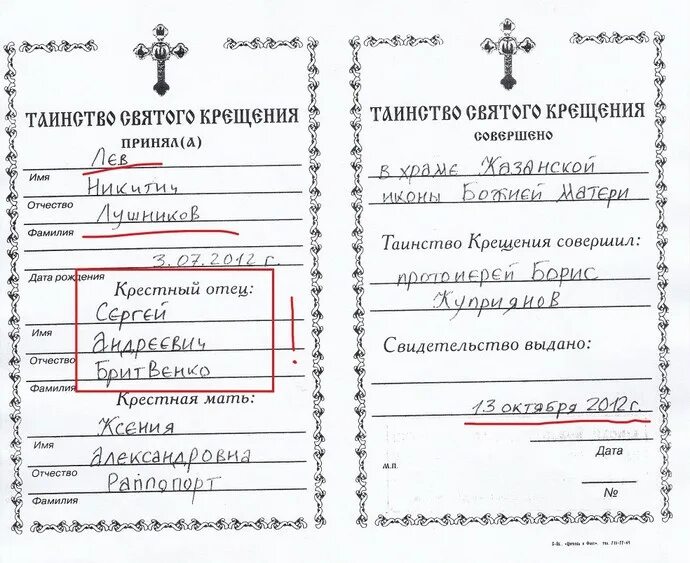 ТАИНСТВО СВЯТОГО КРЕЩЕНИЯ
ПРИНЯЛ(А)
Лев
Имя
Никитич
Отчество
Лушников
Фамилия
3.07.2012 г.
Дата рождения
Крестный отец:
Сергей
Имя
Андреевич
Отчество
Бритвенко
Фамилия
!
Крестная мать:
Ксения
Имя
Александровна
Отчество
Раппопорт
Фамилия
ТАИНСТВО СВЯТОГО КРЕЩЕНИЯ
СОВЕРШЕНО
в храме Казанской
иконы Божией Матери
Таинство Крещения совершил:
протоиерей Борис
Куприянов
Свидетельство выдано:
13 октября 2012 г.
Дата
М.П.
№